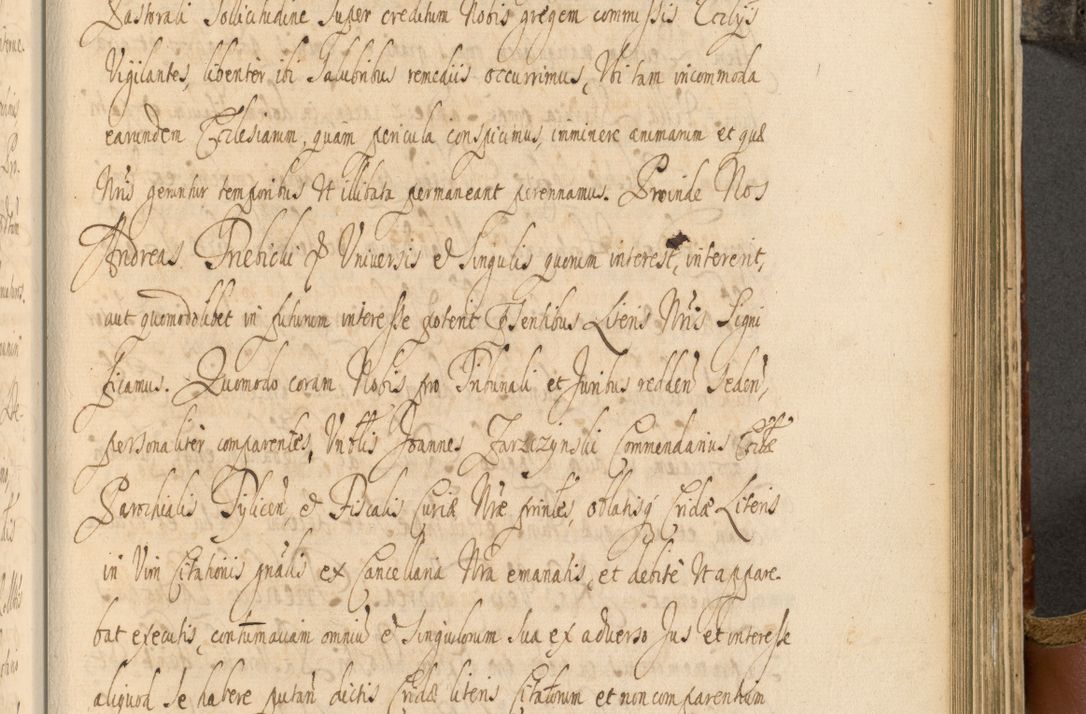 Pastorali Sollicitudine Super creditum Nobis gregem commissis Ecclijs
Vigilantes, libenter ibi Salubribus remediis occurrimus, Vbi tam incommoda
earundem Ecclesiarum, quam pericula conspicimus, imminere animarum et quæ
Nris geruntur temporibus Vt illibata permaneant perennamus. Proinde Nos
Andreas Trebicki & Universis et Singulis quorum interest, intererit,
aut quomodolibet in futurum interesse poterit pSentibus Literis Nris Signi
ficamus. Quomodo coram Nobis pro Tribunali et Juribus redden Seden,
personaliter comparentes, Vnblis Joannes Zarzczynski Commendarius Ecclæ
Parochialis Pylicen et Fiscalis Curiæ Nræ prntes, oblatisq Cridæ Literis
in Vim Citationis gnalis ex Cancellaria Nra emanatis, et debite Vt appare-
bat executis, contumaciam omniu et Singulorum Sua ex adverso Jus et interesse
aliquod Se habere putan dictis Cridæ literis Citatorum et non comparentium